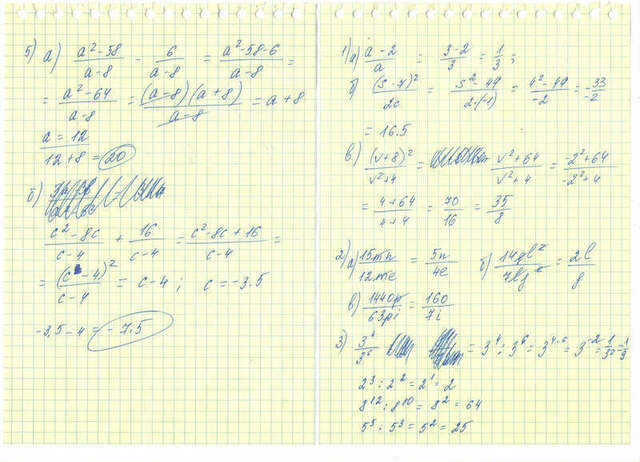 5) а) (a² - 58)/(a-8) - 6/(a-8) = (a² - 58 - 6)/(a-8) =
= (a² - 64)/(a-8) = (a-8)(a+8)/(a-8) = a + 8
a = 12
12 + 8 = 20
б)
(c² - 8c)/(c-4) + 16/(c-4) = (c² - 8c + 16)/(c-4) =
= (c-4)²/(c-4) = c - 4; c = -3.5
-3,5 - 4 = -7,5
1) а) (a-2)/a = (3-2)/3 = 1/3;
б) (s-7)²/2c = (s² - 49)/(2·(-1)) = (4² - 49)/(-2) = -33/-2
= 16.5
в) (v+8)²/(v²+4) = (v²+64)/(v²+4) = (-2²+64)/(-2²+4)
= (4+64)/(4+4) = 70/16 = 35/8
2) а) 15mn/12me = 5n/4e б) = 2l/g
в) 1440p/63pi = 160/7i
3) 3⁴/3⁶ = 3⁴ : 3⁶ = 3⁴⁻⁶ = 3⁻² = 1/3² = 1/9
2³ : 2² = 2¹ = 2
8¹² : 8¹⁰ = 8² = 64
5⁵ : 5³ = 5² = 25